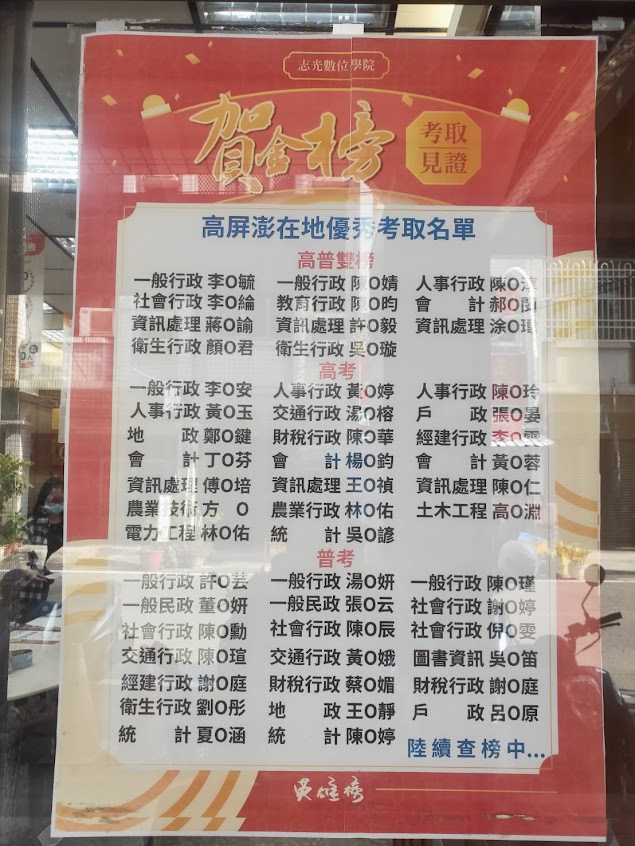 志光數位學院
賀金榜
考取
見證
高屏澎在地優秀考取名單
高普雙榜
一般行政 李O毓 一般行政 陳O婧 人事行政 陳O淳
社會行政 李O綸 教育行政 陳O昀 會 計 郝O
資訊處理 蔣O諭 資訊處理 許O毅 資訊處理 涂O瑋
衛生行政 顏O君 衛生行政 吳O璇
高考
一般行政 李O安 人事行政 黃O婷 人事行政 陳O玲
人事行政 黃O玉 交通行政 湯O榕 戶 政 張O晏
地 政 鄭O鍵 財稅行政 陳O華 經建行政 李O
會 計 丁O芬 會 計 楊O鈞 會 計 黃O蓉
資訊處理 傅O培 資訊處理 王O禎 資訊處理 陳O仁
農業技術 方 O 農業行政 林O佑 土木工程 高O淵
電力工程 林O佑 統 計 吳O諺
普考
一般行政 許O芸 一般行政 湯O妍 一般行政 陳O瑾
一般民政 董O妍 一般民政 張O云 社會行政 謝O婷
社會行政 陳O勳 社會行政 陳O辰 社會行政 倪O雯
交通行政 陳O瑄 交通行政 黃O娥 圖書資訊 吳O笛
經建行政 謝O庭 財稅行政 蔡O媚 財稅行政 謝O庭
衛生行政 劉O彤 地 政 王O靜 戶 政 呂O原
統 計 夏O涵 統 計 陳O婷
陸續查榜中...